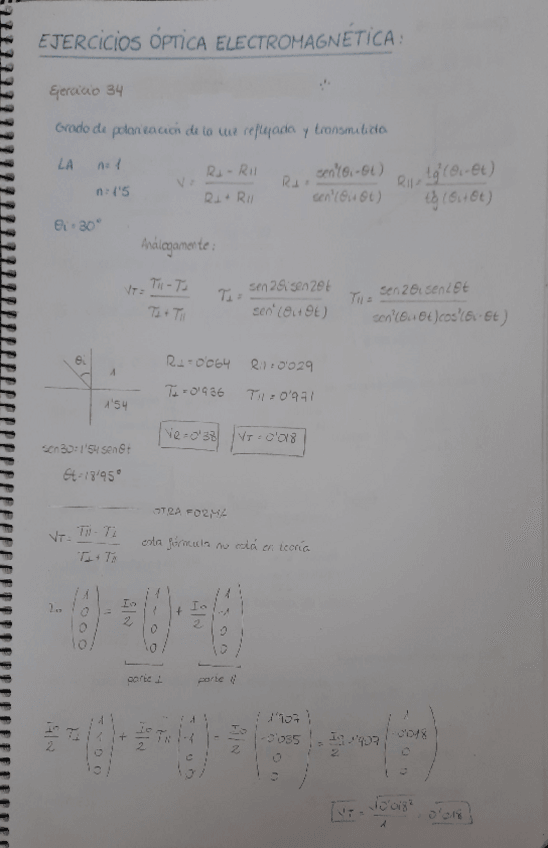 EJERCICIOS ÓPTICA ELECTROMAGNÉTICA:
Ejercicio 34
Grado de polarización de la luz reflejada y transmitida
LA n=1
n=1'5
θi=30°
V = (R⊥ - R∥)/(R⊥ + R∥) R⊥ = sen²(θi-θt)/sen²(θi+θt) R∥ = tg²(θi-θt)/tg(θi+θt)
Análogamente:
VT = (T∥ - T⊥)/(T⊥ + T∥) T⊥ = sen2θi sen2θt/sen²(θi+θt) T∥ = sen2θi sen2θt/sen²(θi+θt)cos²(θi-θt)
θi 1
1'54
R⊥=0'064 R∥=0'029
T⊥=0'936 T∥=0'971
VR=0'38 VT=0'018
sen30=1'54senθt
θt=18'95°
OTRA FORMA
VT = (T∥ - T⊥)/(T⊥ + T∥) esta fórmula no está en teoría
Io (1 0 0 0) = Io/2 (1 1 0 0) + Io/2 (1 -1 0 0)
parte ⊥ parte ∥
Io/2 T⊥ (1 1 0 0) + Io/2 T∥ (1 -1 0 0) = Io/2 (1'907 -0'035 0 0) = Io/2 1'907 (1 -0'018 0 0)
VT = √0'018²/1 = 0'018